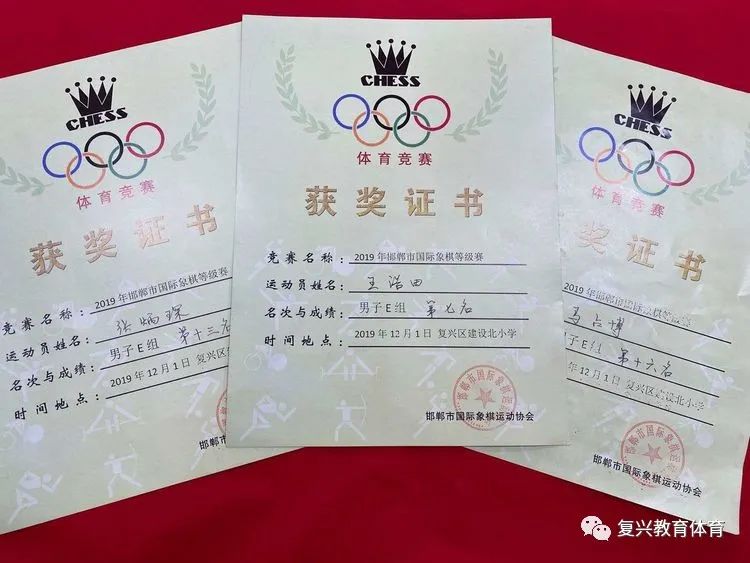 CHESS
体育竞赛
获奖证书
竞赛名称：2019年邯郸市国际象棋等级赛
运动员姓名：张炳琛
名次与成绩：男子E组 第十三名
时间地点：2019年12月1日 复兴区
邯郸市国
CHESS
体育竞赛
获奖证书
竞赛名称：2019年邯郸市国际象棋等级赛
运动员姓名：王浩田
名次与成绩：男子E组 第七名
时间地点：2019年12月1日 复兴区建设北小学
邯郸市国际象棋运动协会
CHESS
体育竞赛
奖证书
2019年邯郸市国际象棋等级赛
孟占博
子E组 第十六名
年12月1日 复兴区建设北小学
邯郸市国际象棋运动协会
复兴教育体育